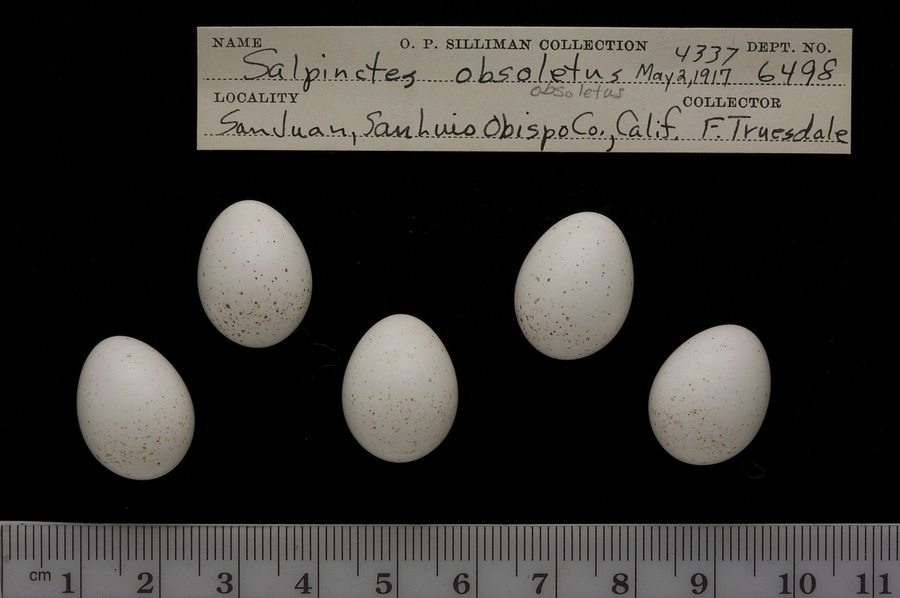 NAME O. P. SILLIMAN COLLECTION 4337 DEPT. NO.
Salpinctes obsoletus May 2, 1917 6498
obsoletus
LOCALITY COLLECTOR
San Juan, San Luis Obispo Co., Calif. F. Truesdale
cm 1 2 3 4 5 6 7 8 9 10 11